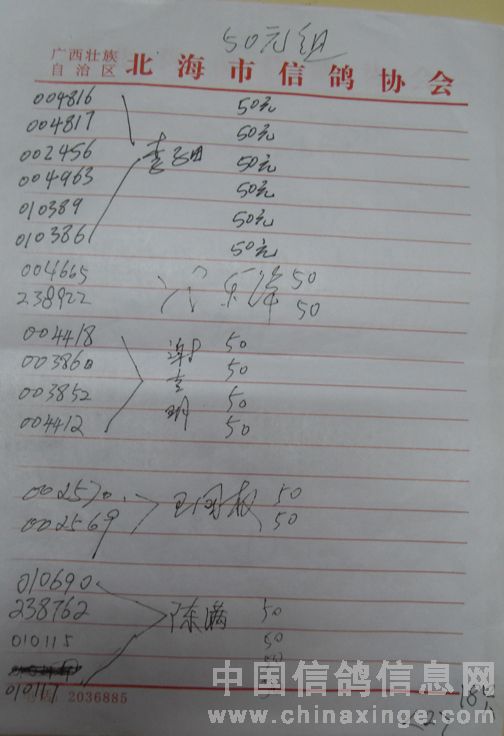 50元组
广西壮族自治区 北海市信鸽协会
004816 50元
004817 50元
002456 50元
004963 50元
010389 50元
010386 50元
004665 50
238922 50
004418 谢 50
003860 50
003852 50
004412 明 50
002570 王国权 50
002569 50
010690
238762 陈满 50
010115 50
010117
2036885
中国信鸽信息网
www.chinaxinge.com